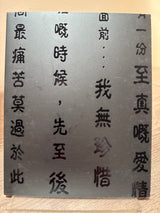 一份至真嘅愛情
面前...我無珍惜
嘅時候，先至後
最痛苦莫過於此